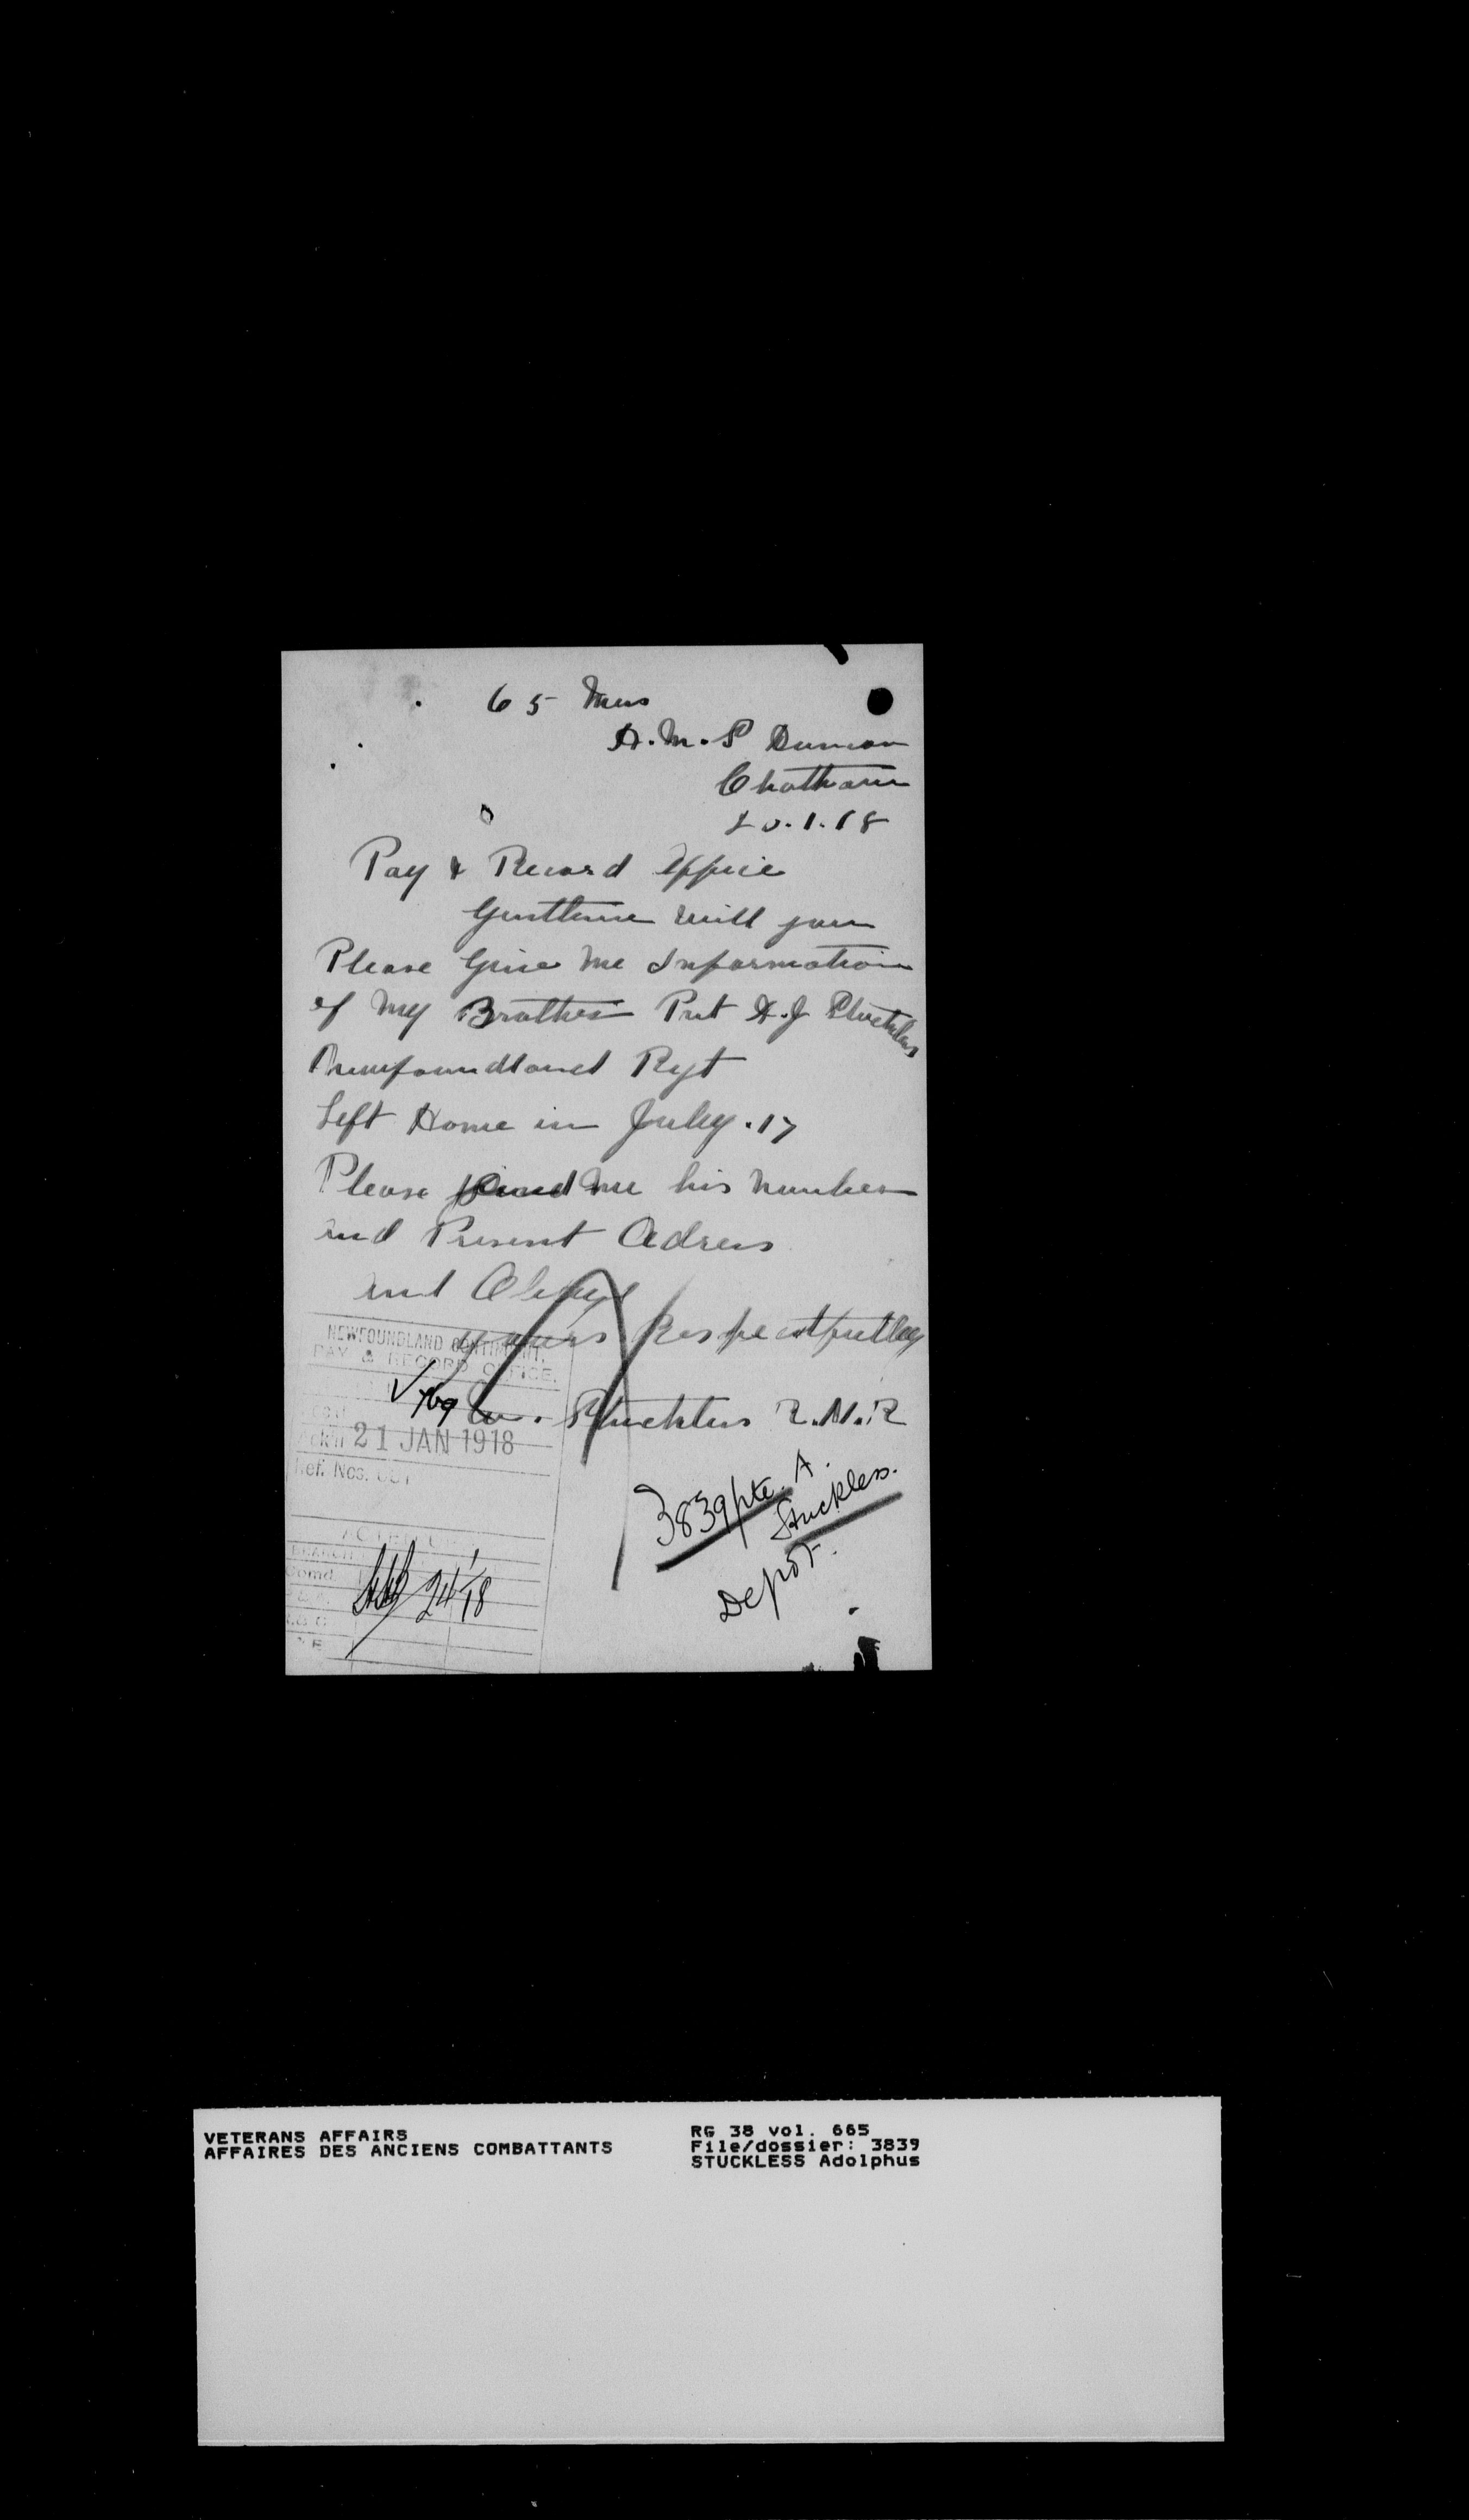 65 Mess
H.M.S Duncan
Chatham
20.1.18
Pay & Record Office
Gentlemen will you
Please Give Me Information
of My Brother Prvt A.J Stuckless
Newfoundland Rgt
Left Home in July .17
Please send me his number
and Present Adress
and Oblige
yours Respectfully
Stuckless R.N.R
NEWFOUNDLAND CONTINGENT,
PAY & RECORD OFFICE.
21 JAN 1918
Ref. Nos.
3839 Pte. A.
Stuckless.
Depot.
24/1/18
VETERANS AFFAIRS
AFFAIRES DES ANCIENS COMBATTANTS
RG 38 vol. 665
File/dossier: 3839
STUCKLESS Adolphus